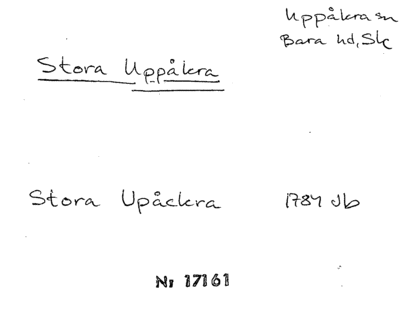 Uppåkra sn
Bara hd, Sk
Stora Uppåkra
Stora Upåckra 1784 Jb
Nr 17161